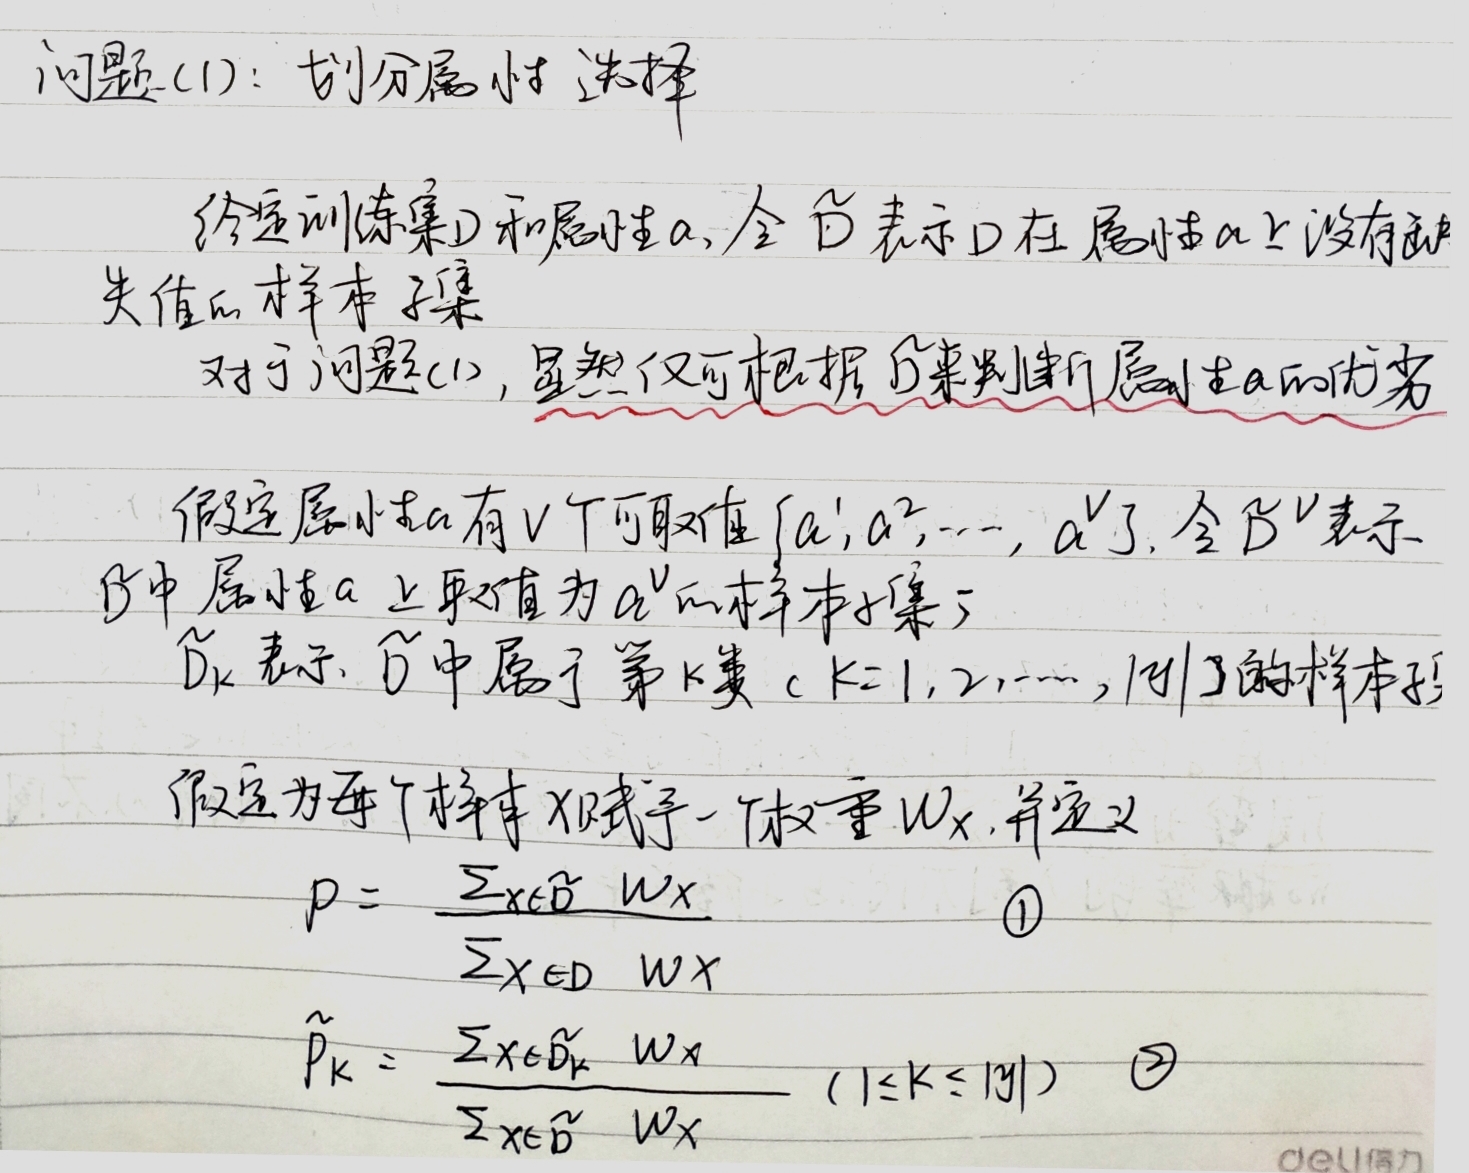 问题(1): 划分属性选择
给定训练集D和属性a, 令 D̃ 表示D在属性a上没有缺
失值的样本子集
对于问题(1), 显然仅可根据D̃来判断属性a的优劣
假定属性a有V个可取值{a¹, a², ..., aⱽ}, 令D̃ᵛ表示
D̃中属性a上取值为aᵛ的样本子集;
D̃ₖ表示D̃中属于第k类 (k=1,2,...,|y|)的样本子
假定为每个样本x赋予一个权重Wx, 并定义
ρ = Σx∈D̃ Wx / Σx∈D Wx ①
p̃ₖ = Σx∈D̃ₖ Wx / Σx∈D̃ Wx (1≤k≤|y|) ②
deli得力